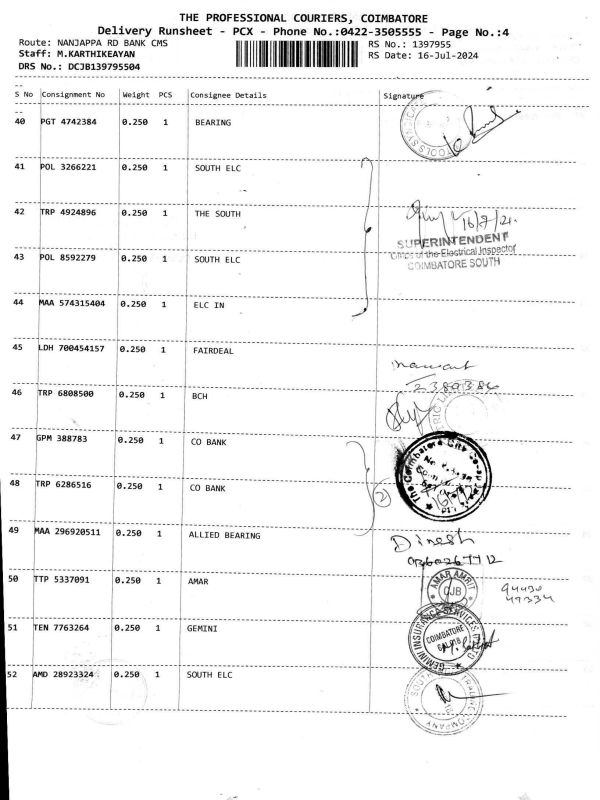 THE PROFESSIONAL COURIERS, COIMBATORE
Delivery Runsheet - PCX - Phone No.:0422-3505555 - Page No.:4
Route: NANJAPPA RD BANK CMS RS No.: 1397955
Staff: M.KARTHIKEAYAN RS Date: 16-Jul-2024
DRS No.: DCJB139795504
S No Consignment No Weight PCS Consignee Details Signature
40 PGT 4742384 0.250 1 BEARING
41 POL 3266221 0.250 1 SOUTH ELC
42 TRP 4924896 0.250 1 THE SOUTH
16/7/24
SUPERINTENDENT
43 POL 8592279 0.250 1 SOUTH ELC
Office of the Electrical Inspector
COIMBATORE SOUTH
44 MAA 574315404 0.250 1 ELC IN
45 LDH 700454157 0.250 1 FAIRDEAL
2389386
46 TRP 6808500 0.250 1 BCH
47 GPM 388783 0.250 1 CO BANK
The Coimbatore City Co-op
48 TRP 6286516 0.250 1 CO BANK
2
49 MAA 296920511 0.250 1 ALLIED BEARING
Dinesh
50 TTP 5337091 0.250 1 AMAR
AMAR AMRIT
CJB
51 TEN 7763264 0.250 1 GEMINI
GEMINI INSURANCE SERVICES
COIMBATORE
52 AMD 28923324 0.250 1 SOUTH ELC
TRADING COMPANY